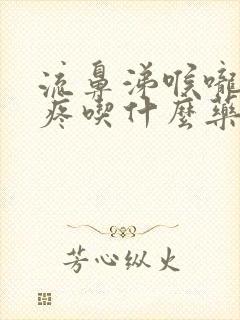 流鼻涕喉嚨
疼喫什麼藥
芳心纵火